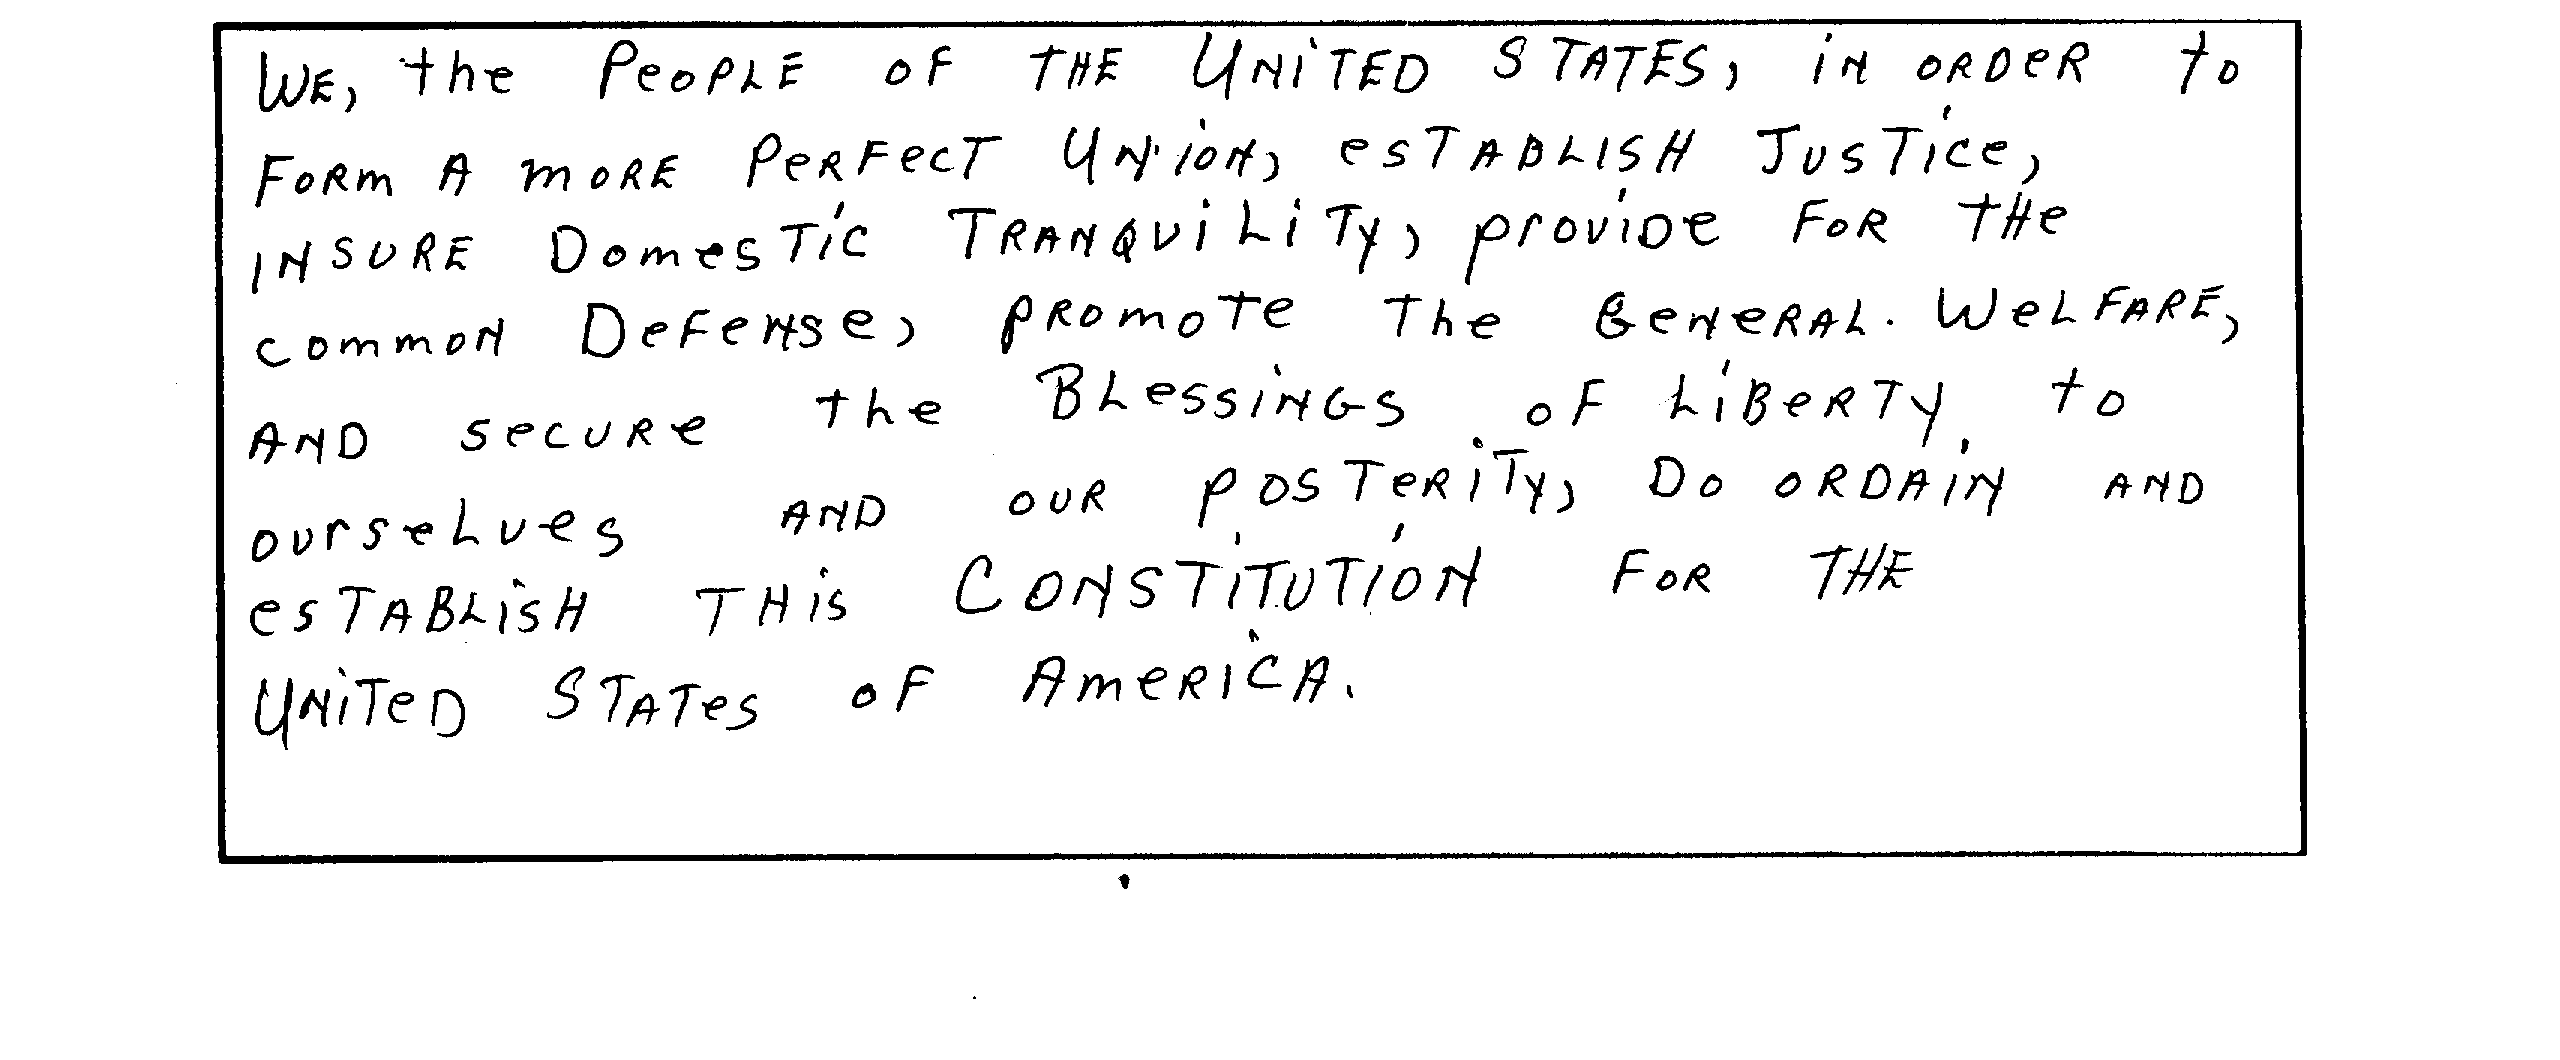 WE, the PeoPLE oF THE UNiTED STATES, iN ORDeR to
FoRm A moRE PeRFecT UNioN, esTABLISH JusTice,
INSURE DomesTic TRANQuiLiTy, proviDe FoR tHe
common DeFeNse, pRomote The GeNeRAL. WeLFARE,
AND secuRe the BLessiNGs oF LiBeRTy to
ourseLves AND ouR posTeRiTy, Do oRDAiN AND
esTABLisH THis CoNSTiTUTioN FoR THE
UNiTeD STATes oF AmeRicA.